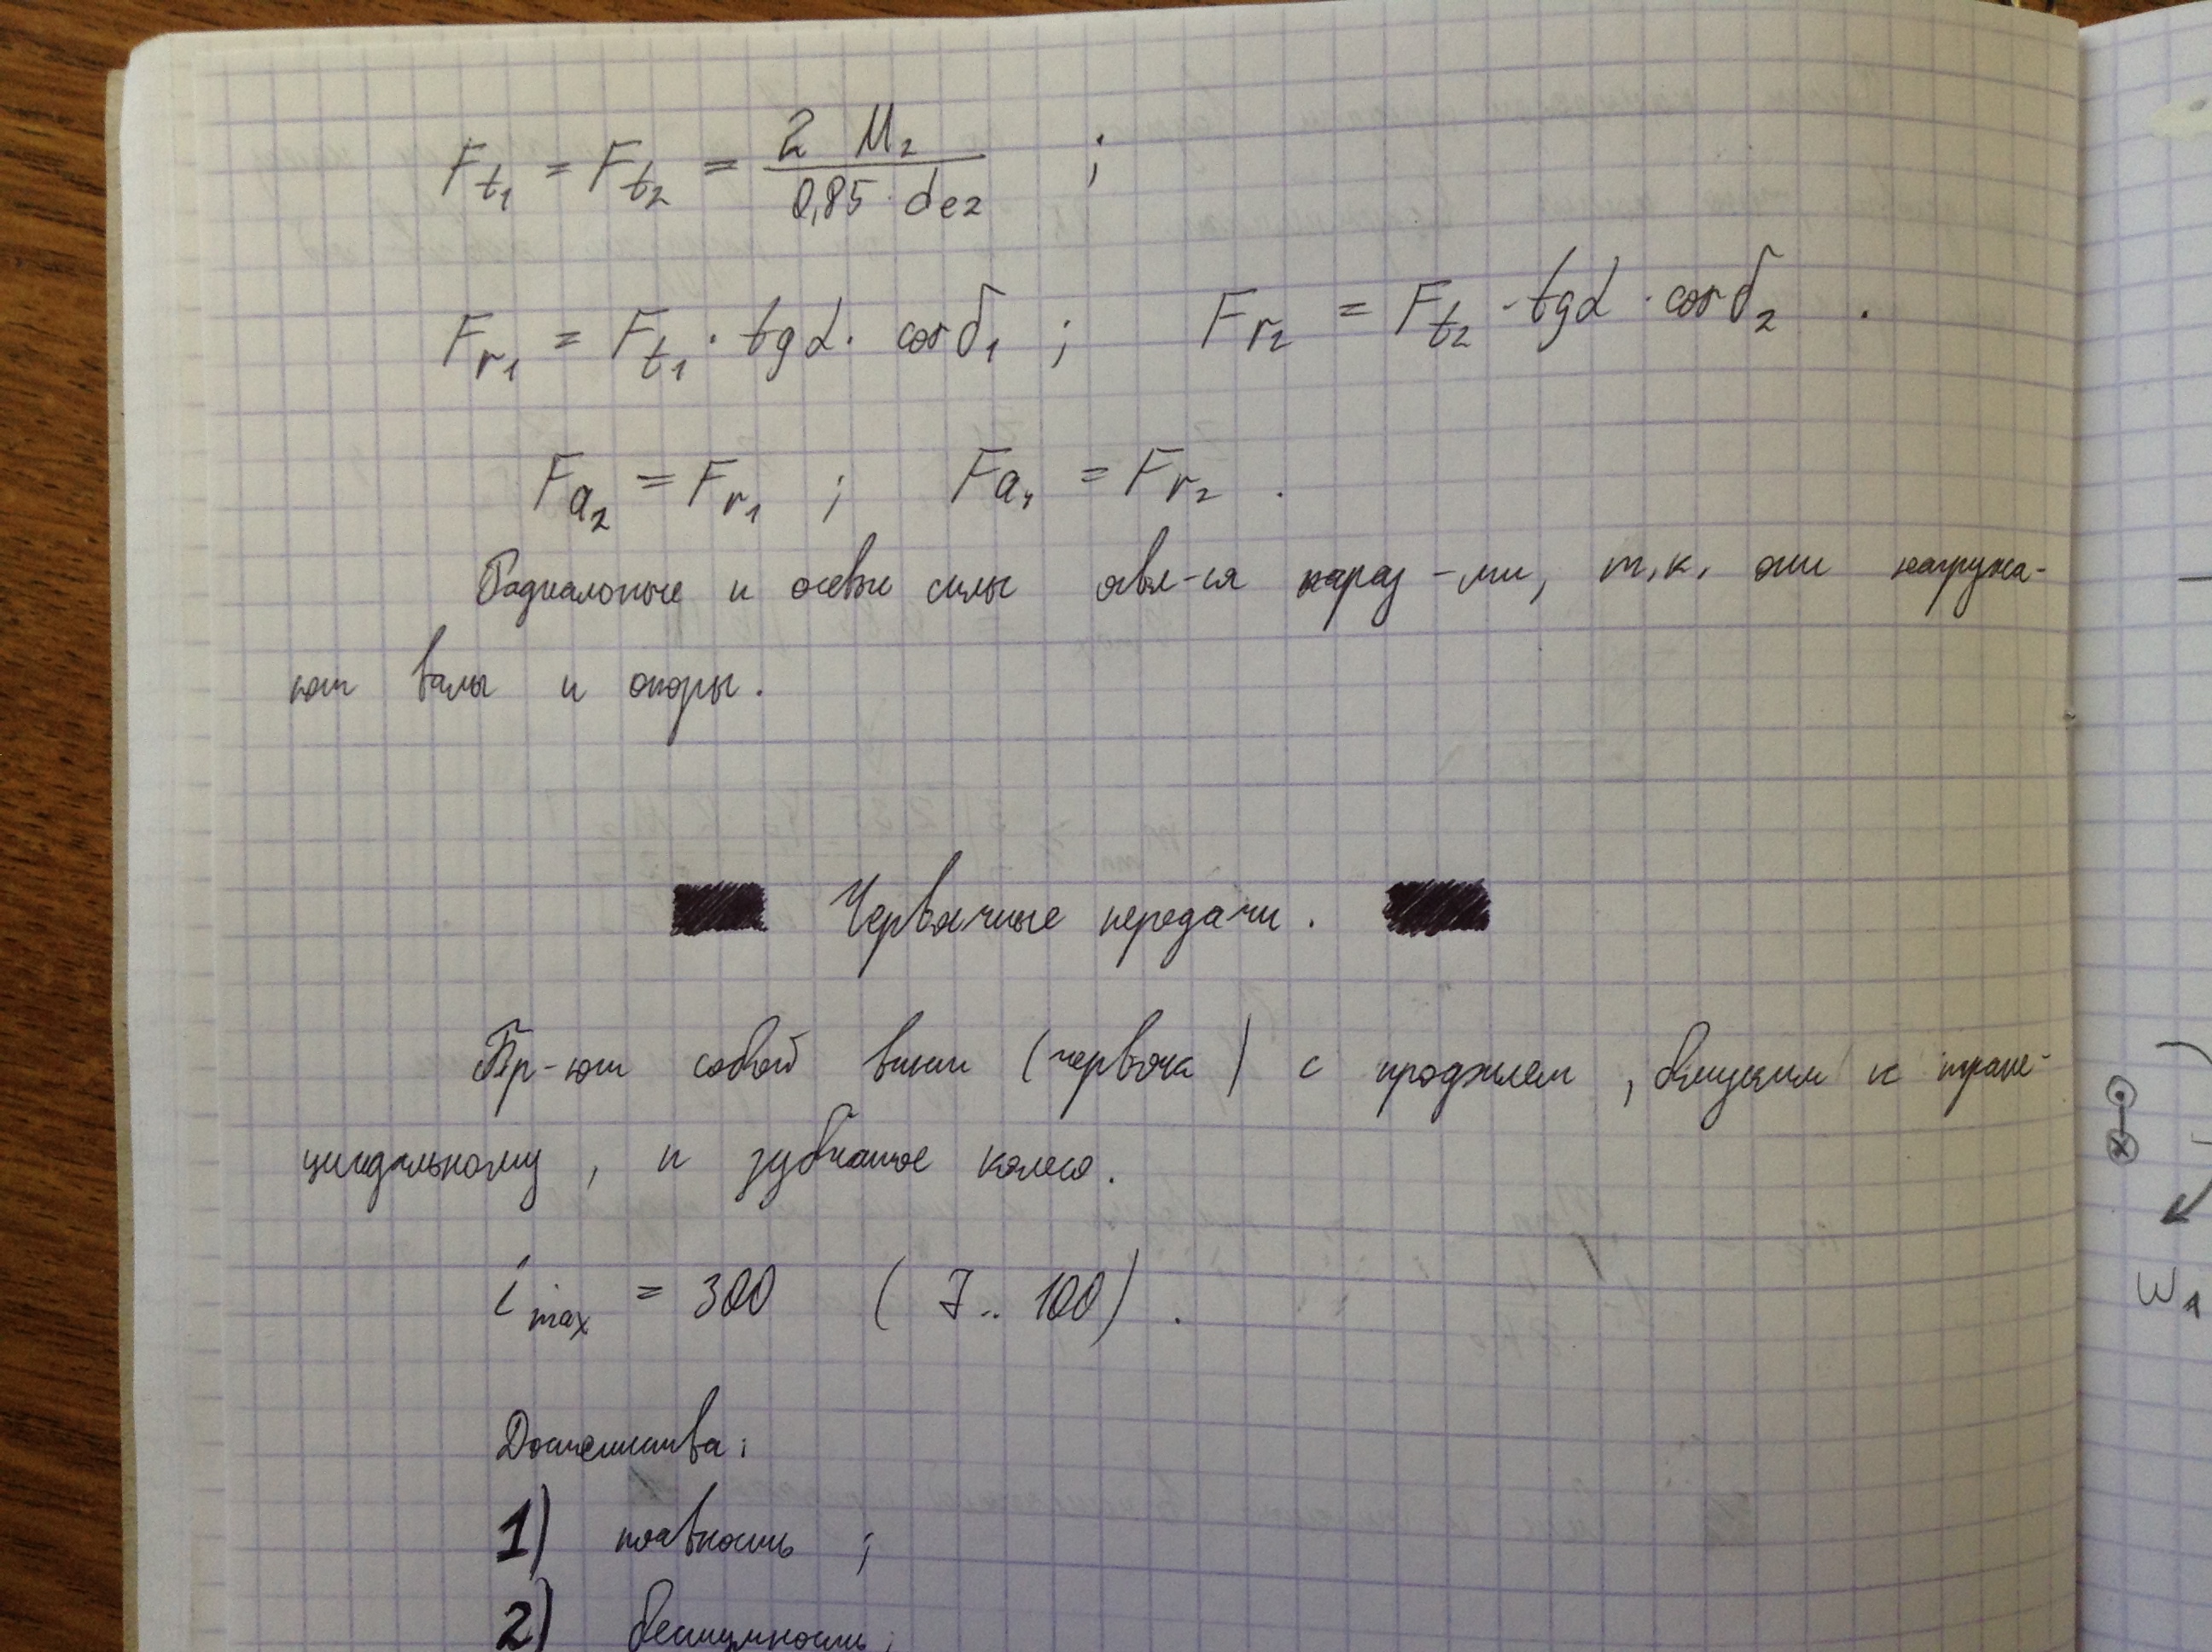 F_t1 = F_t2 = 2 M_2 / 0,85 · d_e2 ;
F_r1 = F_t1 · tgα · cos δ_1 ; F_r2 = F_t2 · tgα · cos δ_2 .
F_a2 = F_r1 ; F_a1 = F_r2 .
Радиальные и осевые силы явл-ся параз-ми, т.к. они нагружа-
ют валы и опоры.
Червячные передачи.
Пр-ют собой винт (червяка) с профилем, близким к трапе-
циидальному, и зубчатое колесо.
i max = 300 (7.. 100) .
Достоинства:
1) плавность ;
2) бесшумность ;
ω_1